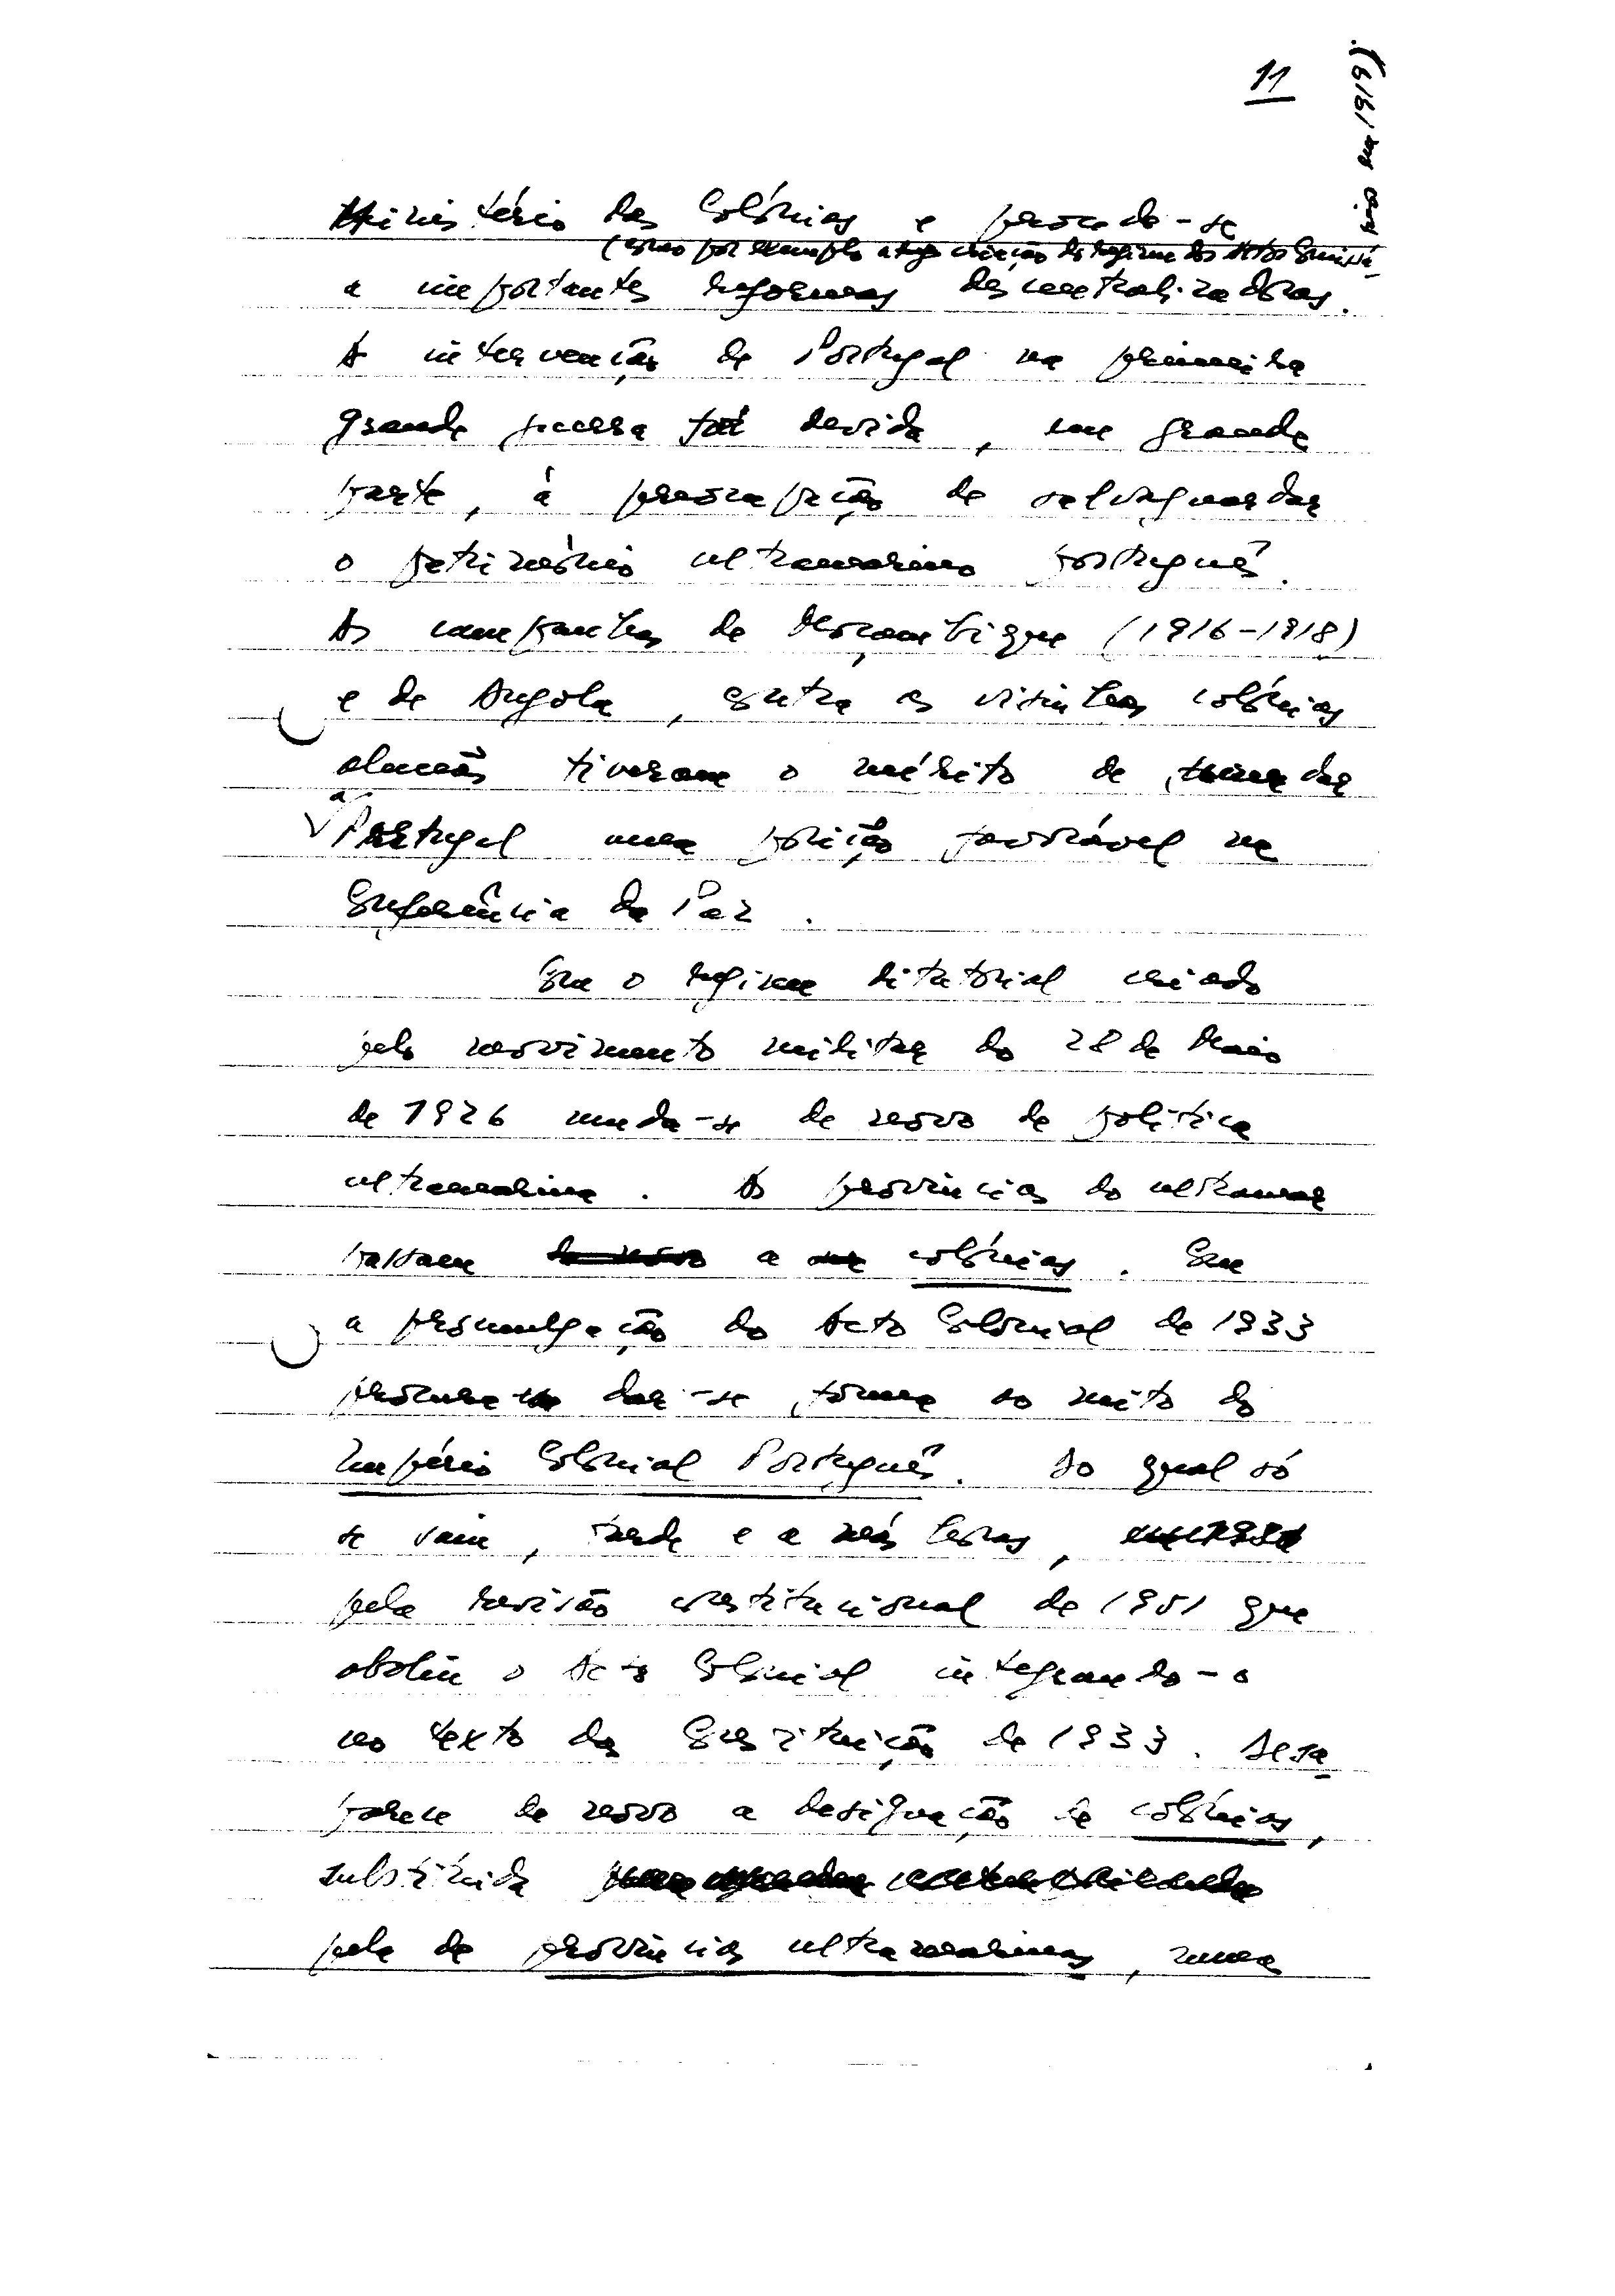 11
Ministério das Colónias e procede-se
(como por exemplo a criação do regime dos Altos Comissá-
rios em 1919).
a importantes reformas descentralizadoras.
A intervenção de Portugal na primeira
grande guerra foi devida, em grande
parte, à preocupação de salvaguardar
o património ultramarino português.
As campanhas de Moçambique (1916-1918)
e de Angola, contra as visinhas colónias
alemãs tiveram o mérito de dar
a Portugal uma posição favorável na
Conferência da Paz.
Com o regime ditatorial criado
pelo movimento militar do 28 de Maio
de 1926 muda-se de novo de política
ultramarina. As províncias do ultramar
passam de novo a colónias. Com
a promulgação do Acto Colonial de 1933
procura dar-se forma ao mito do
Império Colonial Português. Do qual só
se saiu, tarde e a más horas,
pela revisão constitucional de 1951 que
aboliu o Acto Colonial integrando-o
no texto da Constituição de 1933. Desa-
parece de novo a designação de colónias,
substituida
pela de províncias ultramarinas, numa